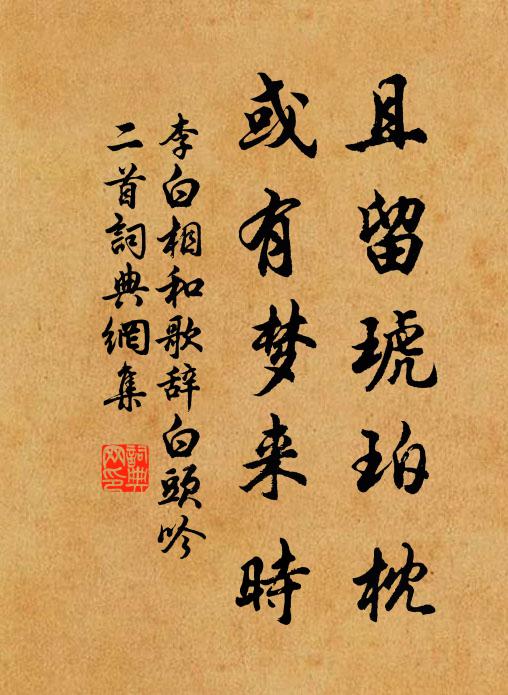 且留琥珀枕
或有梦来時
李白相和歌辞白頭吟
二首詞典網集
詞典
网印